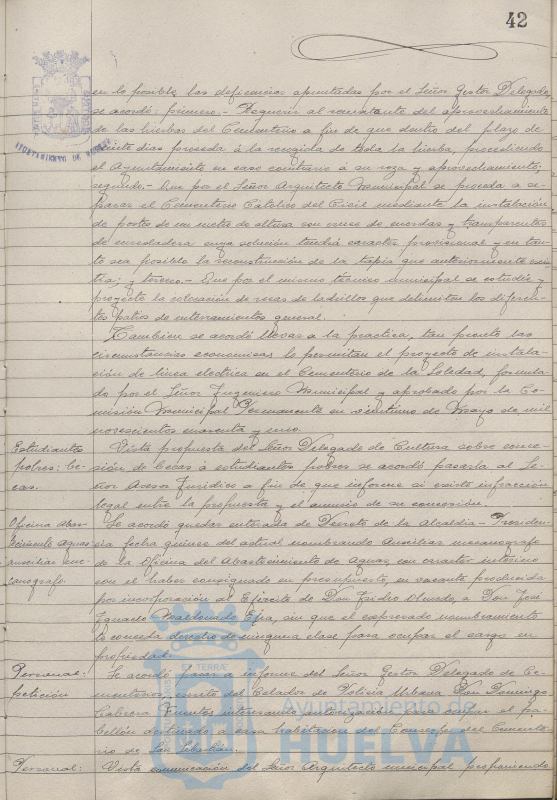 42
en lo posible, las deficiencias apuntadas por el Señor Gestor Delegado,
se acordó: primero.- Requerir al rematante del aprovechamiento
de las hierbas del Cementerio a fin de que dentro del plazo de
siete dias proceda á la recogida de toda la hierba, procediendo
el Ayuntamiento en caso contrario á su roza y aprovechamiento;
segundo.- Que por el Señor Arquitecto Municipal se proceda a se-
parar el Cementerio Catolico del Civil mediante la instalación
de postes de un metro de altura con cruce de cuerdas y transparentes
de enredadera cuya solución tendrá caracter provisional y en tan-
to sea posible la reconstrucción de la tapia que anteriormente exis-
tía; y tercero.- Que por el mismo técnico municipal se estudie y
proyecte la colocación de ladrillos que delimiten los diferen-
tes patios de enterramientos general.
Tambien se acordó llevar a la practica, tan pronto las
circunstancias economicas lo permitan el proyecto de instala-
ción de linea electrica en el Cementerio de la Soledad, formula-
do por el Señor Ingeniero Municipal y aprobado por la Co-
misión Municipal Permanente en veintiuno de Mayo de mil
novecientos cuarenta y uno.
Estudiantes pobres: becas.
Vista propuesta del Señor Delegado de Cultura sobre conce-
sión de becas á estudiantes pobres se acordó pasarla al Se-
ñor Asesor Juridico a fin de que informe si existe infracción
legal entre la propuesta y el anuncio de su concesión.
Oficina Abas-
tecimiento Aguas
auxiliar me-
canografo
Se acordó quedar enterada de Decreto de la Alcaldia-Presiden-
cia fecha quince del actual nombrando Auxiliar mecanografo
de la Oficina del Abastecimiento de Aguas, con caracter interino
con el haber consignado en presupuesto, en vacante producida
por incorporación al Ejército de Don Isidro Olmedo, a Don José
Ignacio Maldonado Ejea, sin que el expresado nombramiento
le conceda derecho de ninguna clase para ocupar el cargo en
propiedad.
Personal:
petición
Se acordó pasar a informe del Señor Gestor Delegado de Ce-
menterios, escrito del Celador de Policia Urbana Don Domingo
Cabrera Fuentes interesando autorización para ocupar el pa-
bellón destinado a casa habitación del Conserje del Cemente-
rio de San Sebastián.
Personal:
Vista comunicación del Señor Arquitecto municipal proponiendo
TERRAE
Ayuntamiento de
HUELVA
AYUNTAMIENTO DE HUELVA